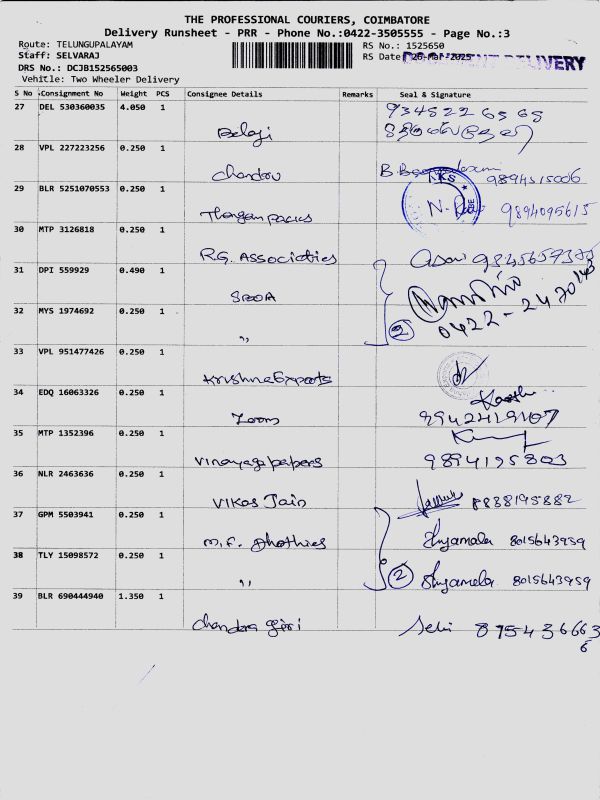 THE PROFESSIONAL COURIERS, COIMBATORE
Delivery Runsheet - PRR - Phone No.:0422-3505555 - Page No.:3
Route: TELUNGUPALAYAM RS No.: 1525650
Staff: SELVARAJ RS Date: 26-Mar-2025 DELIVERY
DRS No.: DCJB152565003
Vehitle: Two Wheeler Delivery
S No Consignment No Weight PCS Consignee Details Remarks Seal & Signature
27 DEL 530360035 4.050 1 9345226565
Balaji
28 VPL 227223256 0.250 1
Chandru 9894515006
29 BLR 5251070553 0.250 1 KKS
Thangam packs N. 9894095615
30 MTP 3126818 0.250 1
R.G. Associaties
31 DPI 559929 0.490 1
SROA
32 MYS 1974692 0.250 1 0422-2470143
〃 2
33 VPL 951477426 0.250 1
Krishna Exports
34 EDQ 16063326 0.250 1
Zoom 9942419107
35 MTP 1352396 0.250 1
Vinayaga papers 9894195803
36 NLR 2463636 0.250 1
Vikas Jain 8838195882
37 GPM 5503941 0.250 1
M.F. Dhothies Shyamala 8015643959
38 TLY 15098572 0.250 1
〃 2 Shyamala 8015643959
39 BLR 690444940 1.350 1
Chandra giri Selvi 8754366636